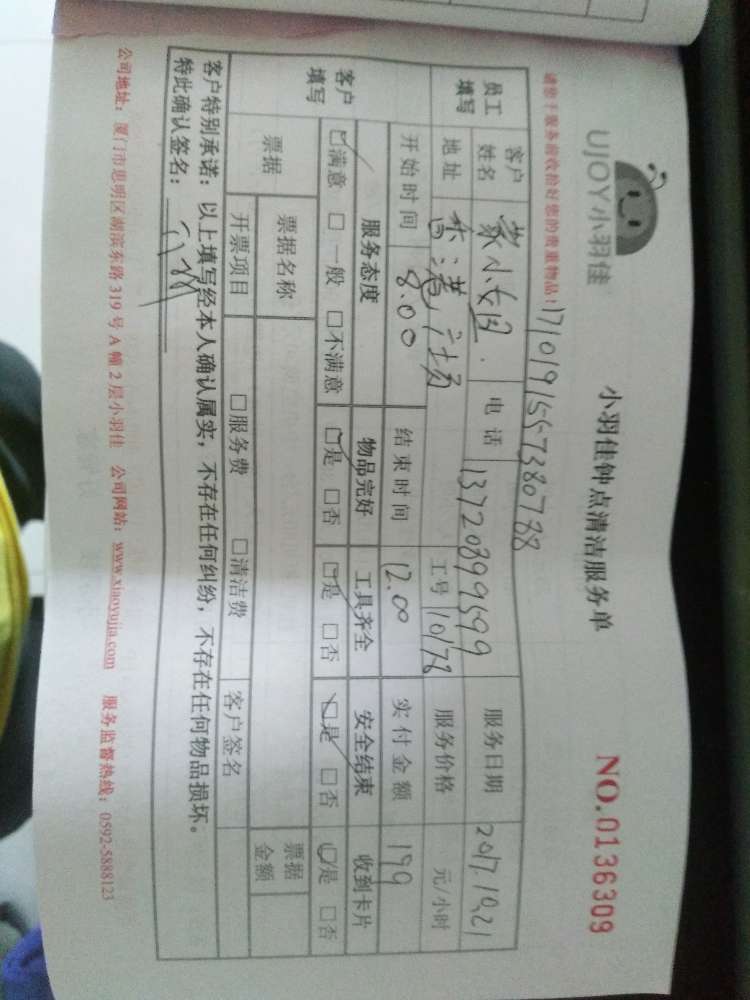 UJOY小羽佳
小羽佳钟点清洁服务单
NO.0136309
请您于服务前收拾好您的贵重物品：
17101915573807​88
员工填写
客户姓名 小女因 电话 13720899599 服务日期 2017.10.21
地址 香港广场 工号 110178 服务价格 元/小时
开始时间 8.00 结束时间 12.00 实付金额 199
客户填写
服务态度 物品完好 工具齐全 安全结束 收到卡片
☑满意 □一般 □不满意 ☑是 □否 ☑是 □否 ☑是 □否 ☑是 □否
票据 票据名称 票据金额
开票项目 □服务费 □清洁费 客户签名
客户特别承诺：以上填写经本人确认属实，不存在任何纠纷，不存在任何物品损坏。
特此确认签名：
公司地址：厦门市思明区湖滨东路319号A幢2层小羽佳 公司网站：www.xiaoyujia.com 服务监督热线：0592-5888123